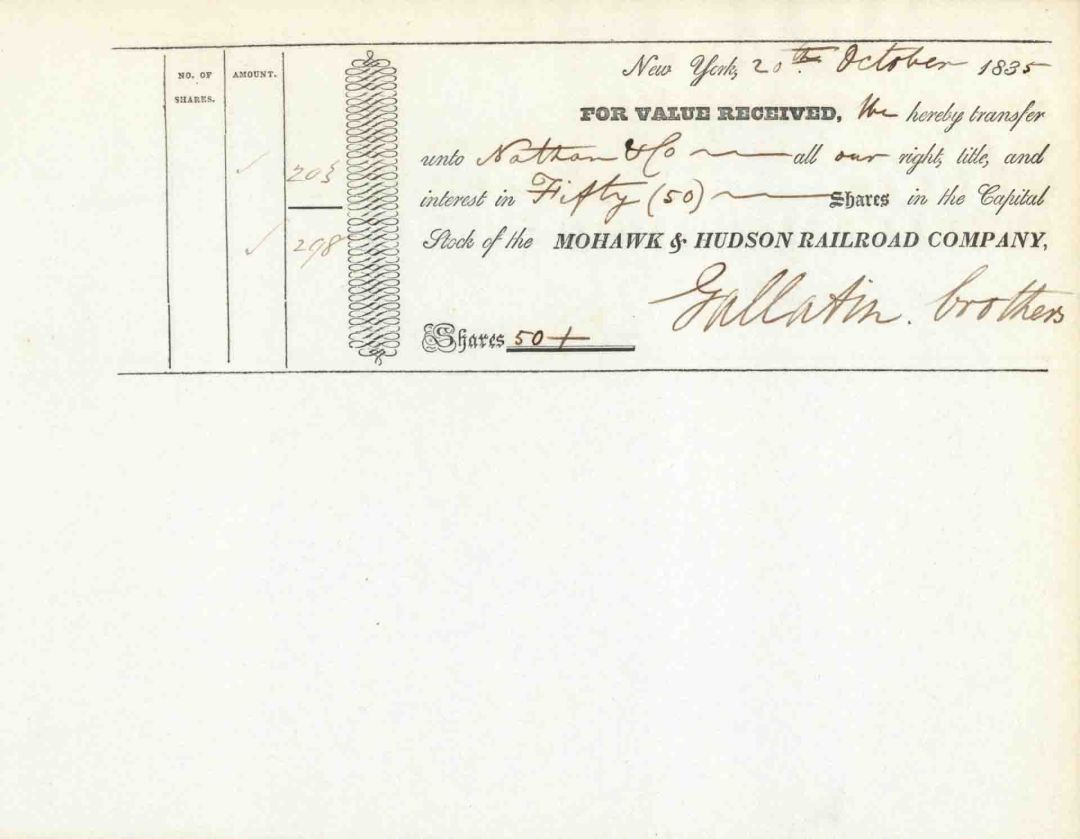 NO. OF
SHARES.
AMOUNT.
298
New York, 20th October 1835
FOR VALUE RECEIVED, We hereby transfer
unto Nathan & Co all our right, title, and
interest in Fifty (50) Shares in the Capital
Stock of the MOHAWK & HUDSON RAILROAD COMPANY,
Gallatin brothers
Shares 50